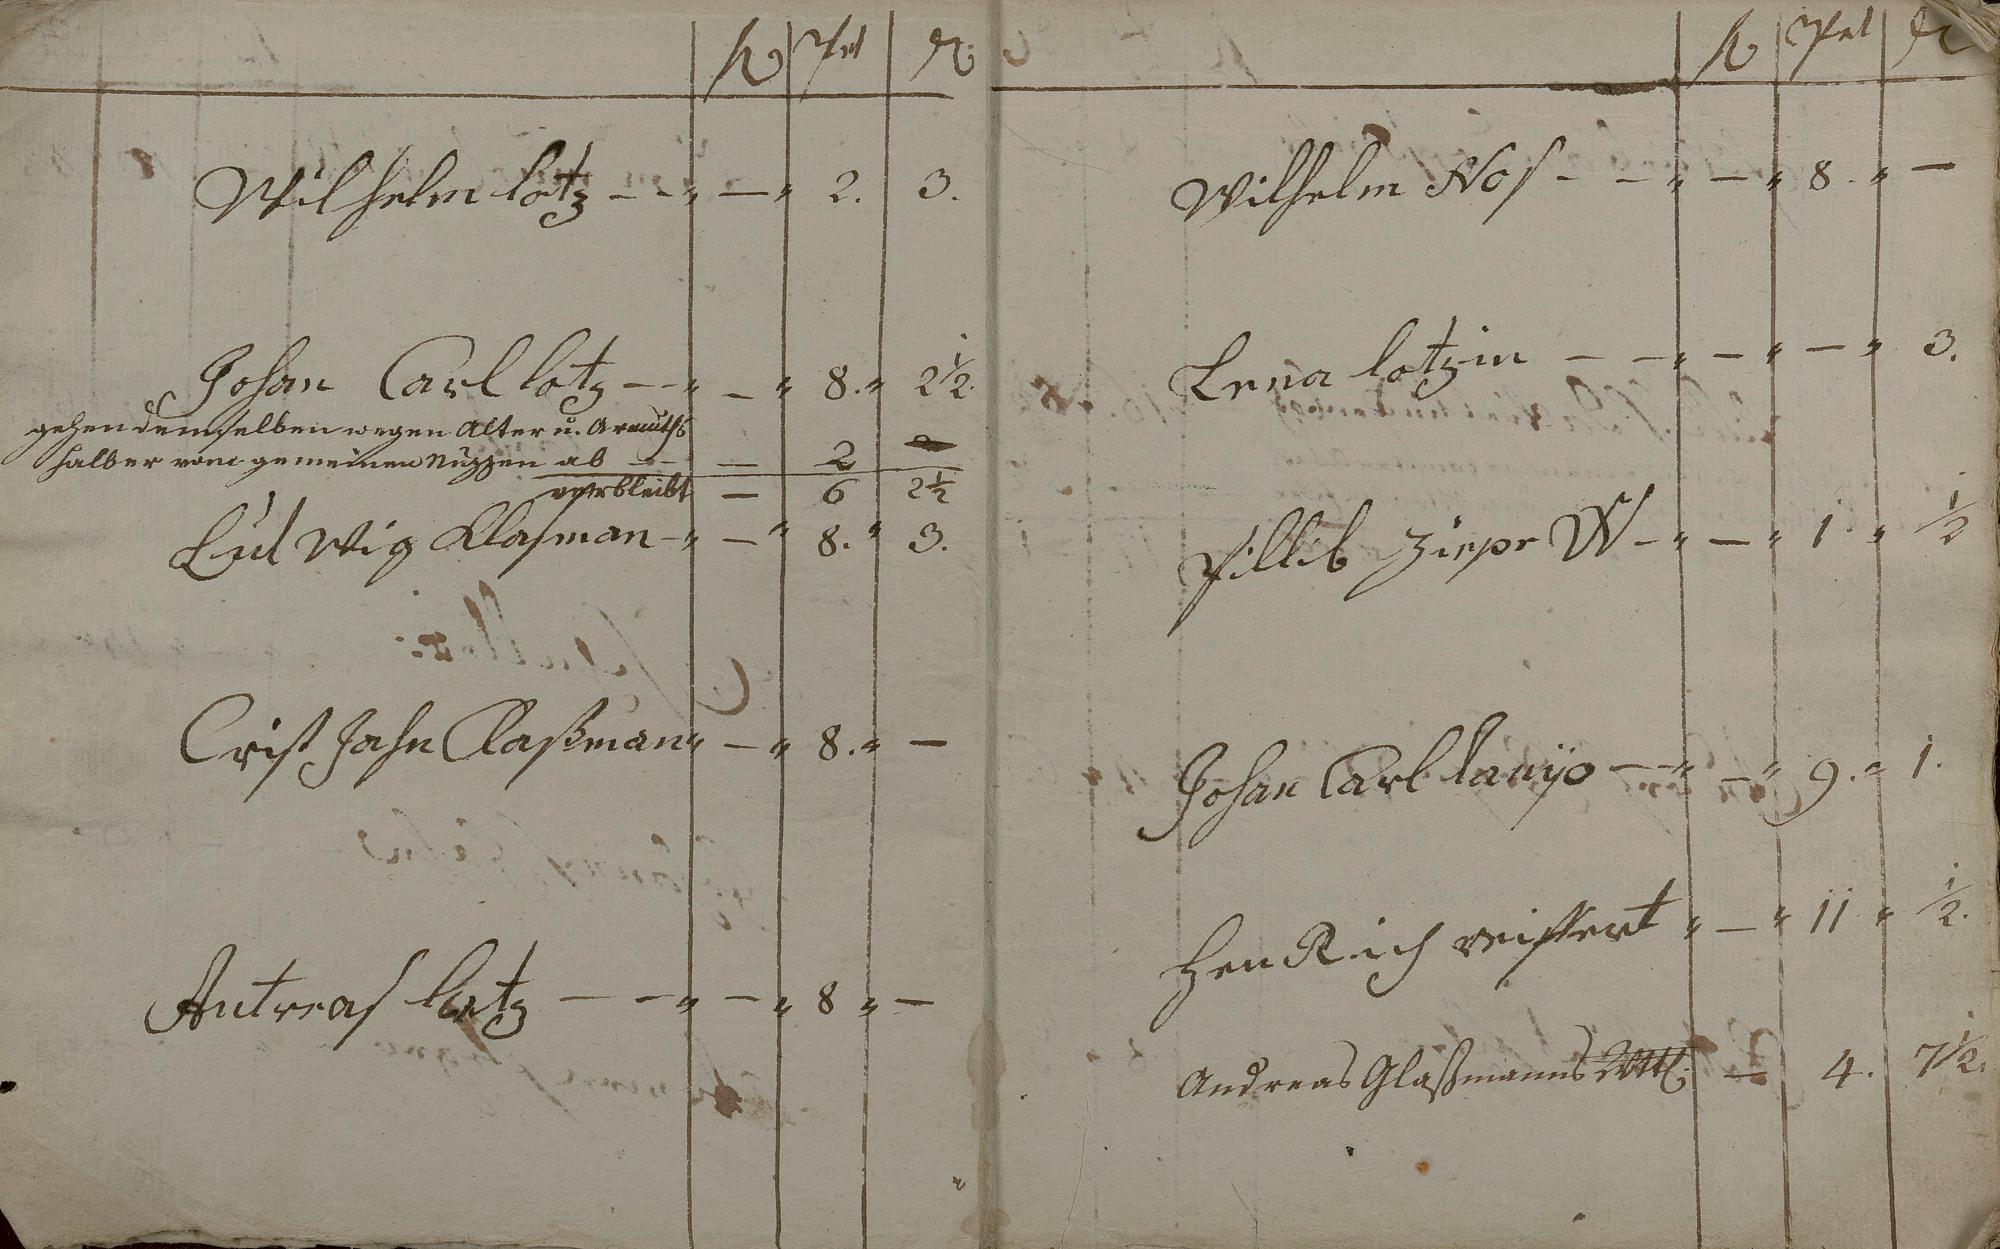 Wilhelm lotz — — „ — „ 2. 3.
Johan Carl lotz — — „ — „ 8. „ 2 1/2.
gehen demselben wegen Alter u. Armuths
halber vom gemeinen Nuzzen ab — — — 2
verbleibt — 6 2 1/2
Ludwig Klasman — „ — „ 8. „ 3.
Crist Jahn Claßman „ — „ 8. „ —
Antreas lotz — — „ — „ 8 „ —
Wilhelm Nos — — „ — „ 8. „ —
Lena lotzin — — „ — „ — „ 3.
Fillib W — „ — „ 1. „ 1/2
Johan Carl — „ — „ 9. „ 1.
HenRich reiffert „ — „ 11 „ 1/2.
Andreas Glaßmanns — 4. 7 1/2.